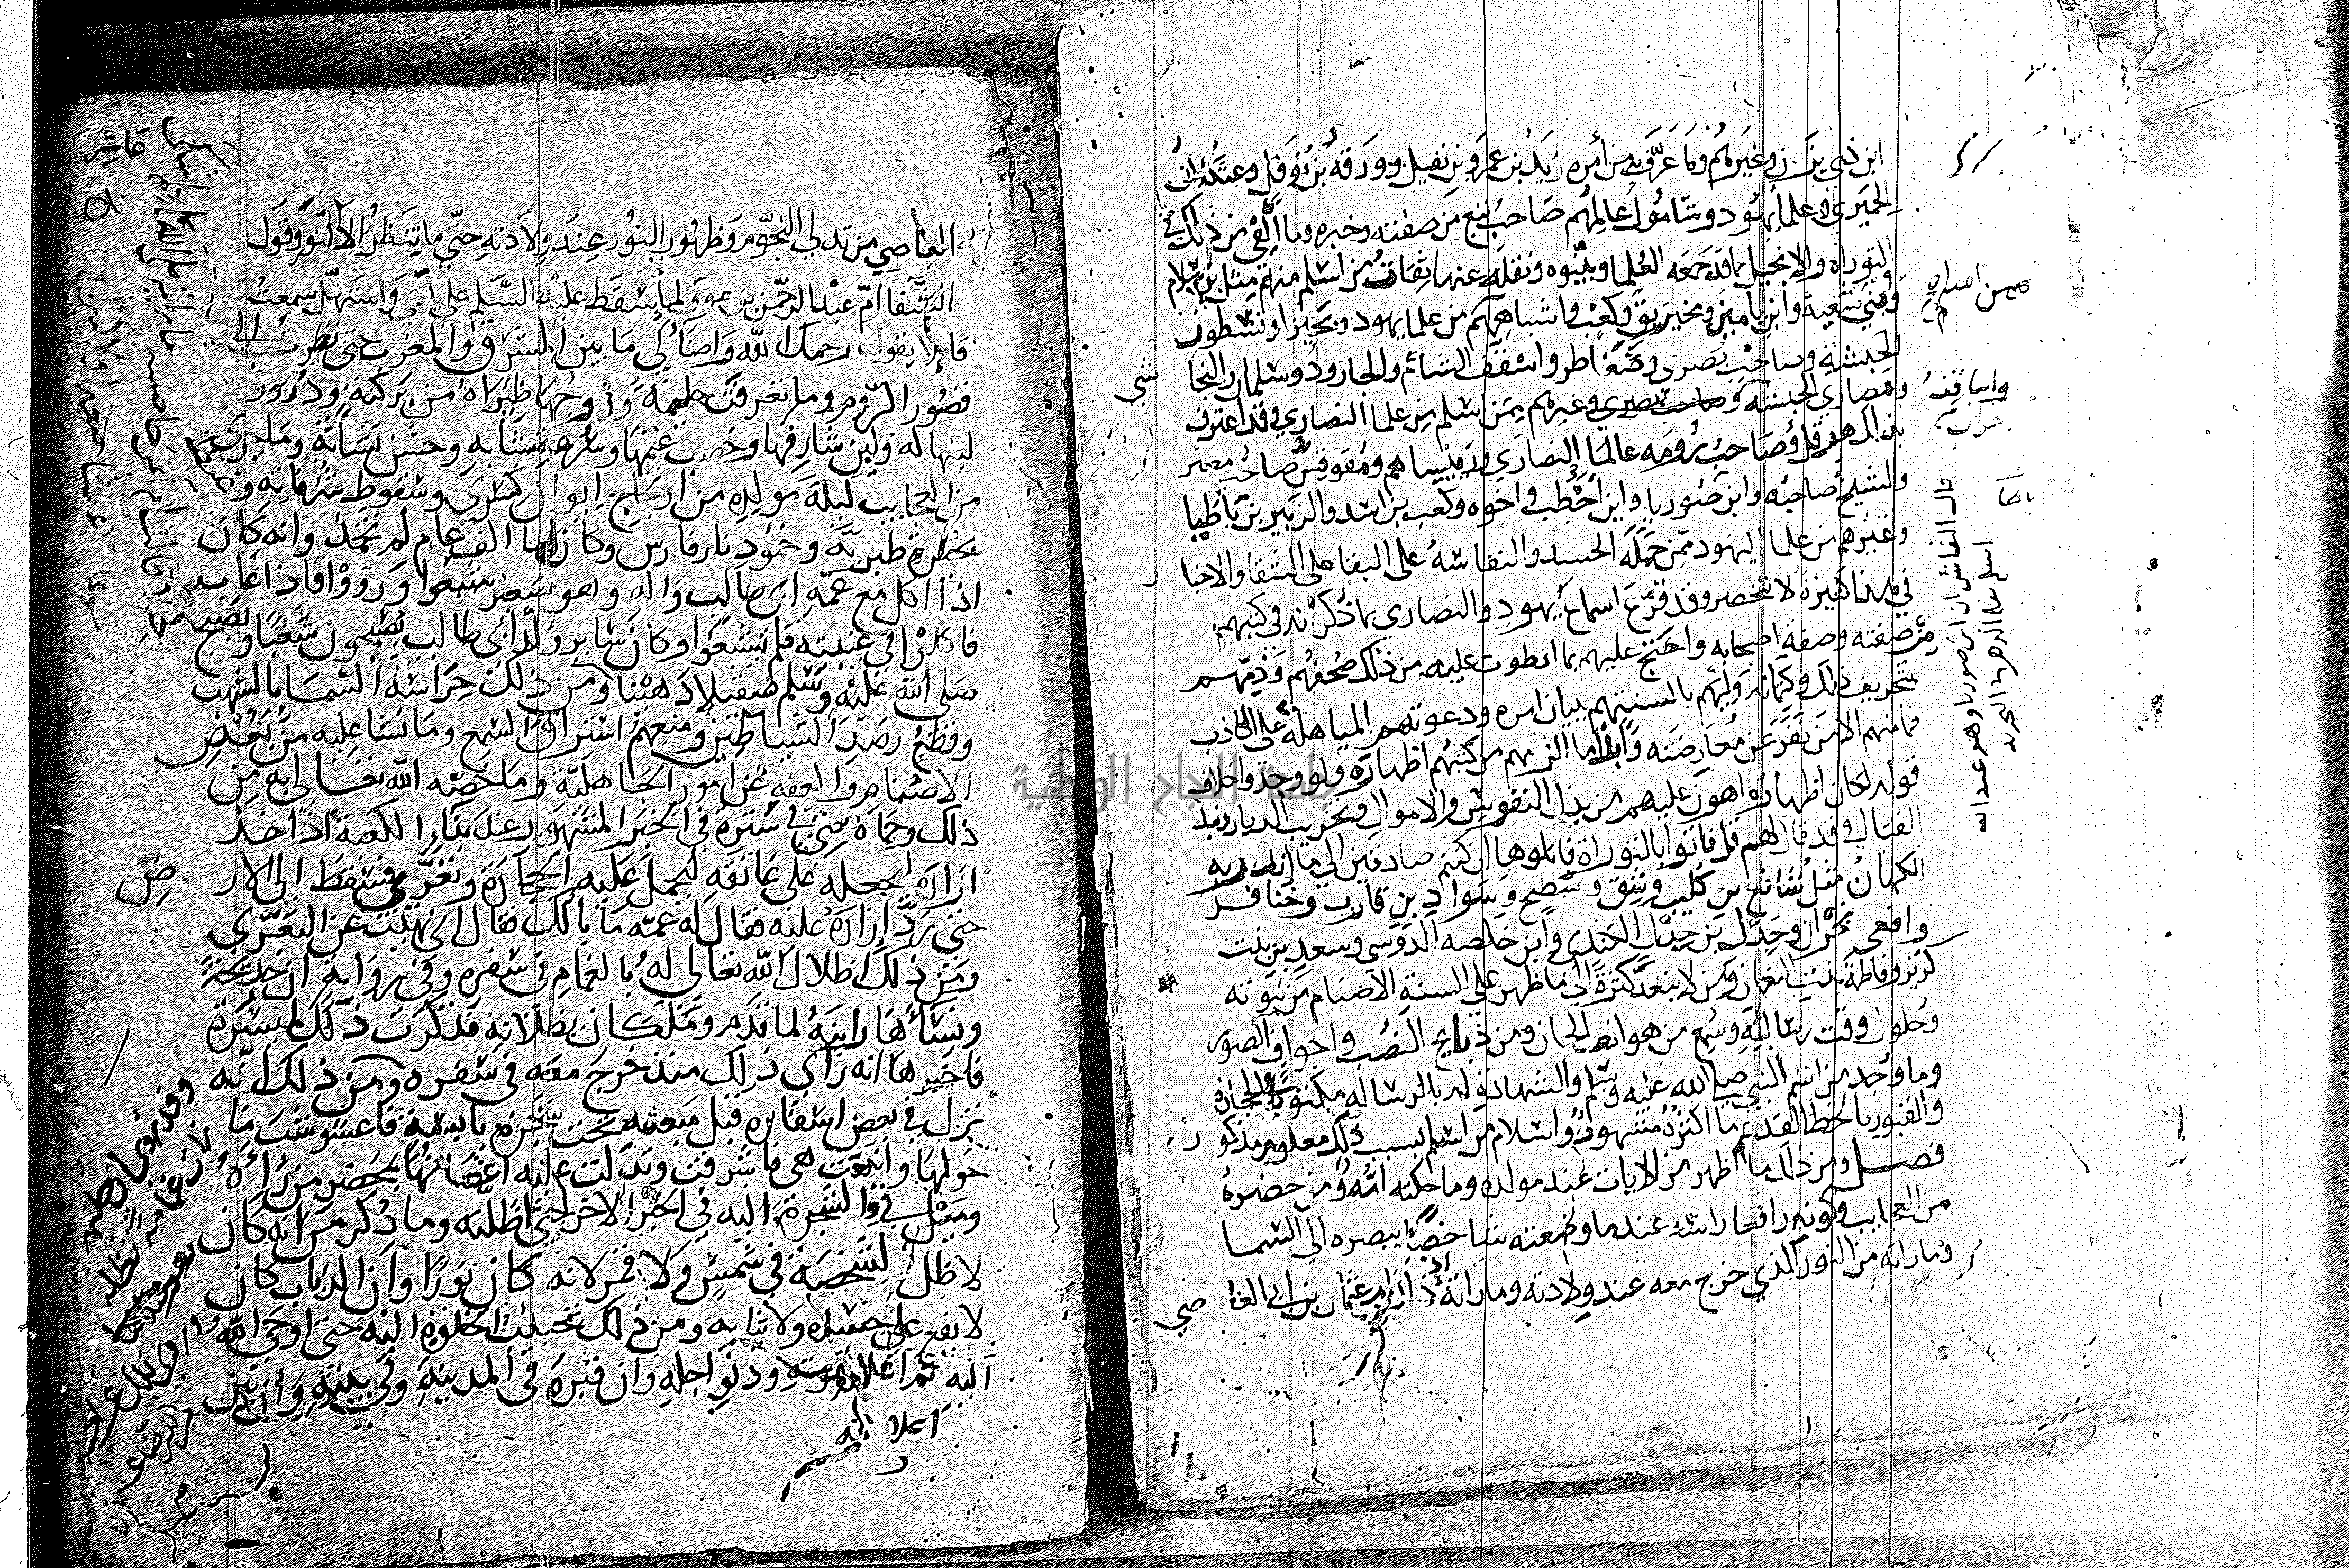 وغيرهم وما عرف به من أمره زيد بن عمرو بن نفيل وورقة بن نوفل وعثكلان
الحميري وعلما يهود وشامول عالمهم صاحب تبع من صفته وخبره وما ألفي من ذلك في
التوراة والإنجيل مما قد جمعه العلما وبينوه ونقله عنهما ثقات من أسلم منهم مثل ابن سلام
وبني سعية وابن يامين ومخيريق وكعب وأشباههم من علما يهود وبحيرا ونسطور
الحبشة وصاحب بصرى وضغاطر وأسقف الشام والجارود وسلمان والنجا
ونصارى الحبشة وغيرهم ممن أسلم من علما النصارى وقد اعترف
بذلك هرقل وصاحب رومة عالما النصارى ورييساهم ومقوقس صاحب مصر
والشيخ صاحبه وابن صوريا وابن أخطب وأخوه وكعب بن أسد والزبير بن باطيا
وغيرهم من علما اليهود ممن حمله الحسد والنفاسة على البقا على الشقا والاخبا
في هذا كثيرة لا تنحصر وقد قرع أسماع يهود والنصارى بما ذكر أنه في كتبهم
من صفته وصفة أصحابه واحتج عليهم بما انطوت عليه من ذلك صحفهم وذمهم
بتحريف ذلك وكتمانه وليهم بالسنتهم ببيان أمره ودعوتهم المباهلة على الكاذب
فما منهم إلا من نفر عن معارضته وإبدا ما ألزمهم من كتبهم إظهاره ولو وجدوا خلاف
قوله لكان إظهاره أهون عليهم من بذل النفوس والأموال وتخريب الديار ونبذ
القتال وقد قال لهم قل فاتوا بالتوراة فاتلوها إن كنتم صادقين إلى ما أنذر به
الكهان مثل شافع بن كليب وشق وسطيح وسواد بن قارب وخنافر
وأفعى نجران وجذل بن جذل الكندي وابن خلصة الدوسي وسعد بن بنت
كريز وفاطمة بنت النعمان ومن لا ينعد كثرة إلى ما ظهر على السنة الأصنام من نبوته
وحلول وقت رسالته وسمع من هواتف الجان ومن ذبايح النصب وأجواف الصور
وما وجد من اسم النبي صلى الله عليه وسلم والشهادة له بالرسالة مكتوبا في الحجارة
والقبور بالخط القديم ما أكثره مشهور وإسلام من أسلم بسبب ذلك معلوم مذكور
فصل ومن ذلك ما ظهر من الايات عند مولده وما حكته أمه ومن حضره
من العجايب وكونه رافعا راسه عند ما وضعته شاخصا ببصره إلى السما
وما راته من النور الذي خرج معه عند ولادته وما راته إذ ذاك أم عثمان بن أبي العا
صي
العاصي من تدلي النجوم وظهور النور عند ولادته حتى ما تنظر إلا النور وقول
الشفا أم عبد الرحمن بن عوف لما سقط عليه السلم على يدي واستهل سمعت
قايلا يقول رحمك الله وأضاء لي ما بين المشرق والمغرب حتى نظرت إلى
قصور الروم وما تعرفت حليمة وزوجها ظيراه من بركته ودرور
لبنها له ولبن شارفها وخصب غنمها وسرعة شبابه وحسن نشأته وما جرى
من العجايب ليلة مولده من ارتجاج إيوان كسرى وسقوط شرفاته وغيض
بحيرة طبرية وخمود نار فارس وكان لها ألف عام لم تخمد وأنه كان
إذا أكل مع عمه أبي طالب واله وهو صغير شبعوا ورووا فإذا غاب
فأكلوا في غيبته لم يشبعوا وكان ساير ولد أبي طالب يصبحون شعثا ويصبح
صلى الله عليه وسلم صقيلا دهينا ومن ذلك حراسة السما بالشهب
وقطع رصد الشياطين ومنعهم استراق السمع وما نشا عليه من بغض
الأصنام والعفة عن أمور الجاهلية وما خصه الله تعالى به من
ذلك وحماه حتى في ستره في الخبر المشهور عند بناء الكعبة إذ أخذ
إزاره ليجعله على عاتقه ليحمل عليه الحجارة وتعرى فسقط إلى الار
ض
حتى رد إزاره عليه فقال له عمه ما بالك فقال إني نهيت عن التعري
ومن ذلك إظلال الله تعالى له بالغمام في سفره وفي رواية أن خديجة
ونساءها راينه لما قدم وملكان يظلانه فذكرت ذلك لميسرة
فأخبرها أنه رأى ذلك منذ خرج معه في سفره ومن ذلك أنه
نزل في بعض أسفاره قبل مبعثه تحت شجرة يابسة فاعشوشب ما
حولها وأينعت هي فأشرقت وتدلت عليه أغصانها بمحضر من رآه
وميل في الشجرة إليه في الخبر الاخر حتى أظلته وما ذكر من أنه كان
لا ظل لشخصه في شمس ولا قمر لأنه كان نورا وأن الذباب كان
لا يقع على جسده ولا ثيابه ومن ذلك تحبيب الخلوة إليه حتى أوحى الله
إليه ثم إعلامه بموته ودنو أجله وأن قبره في المدينة وفي بيته وأن بين